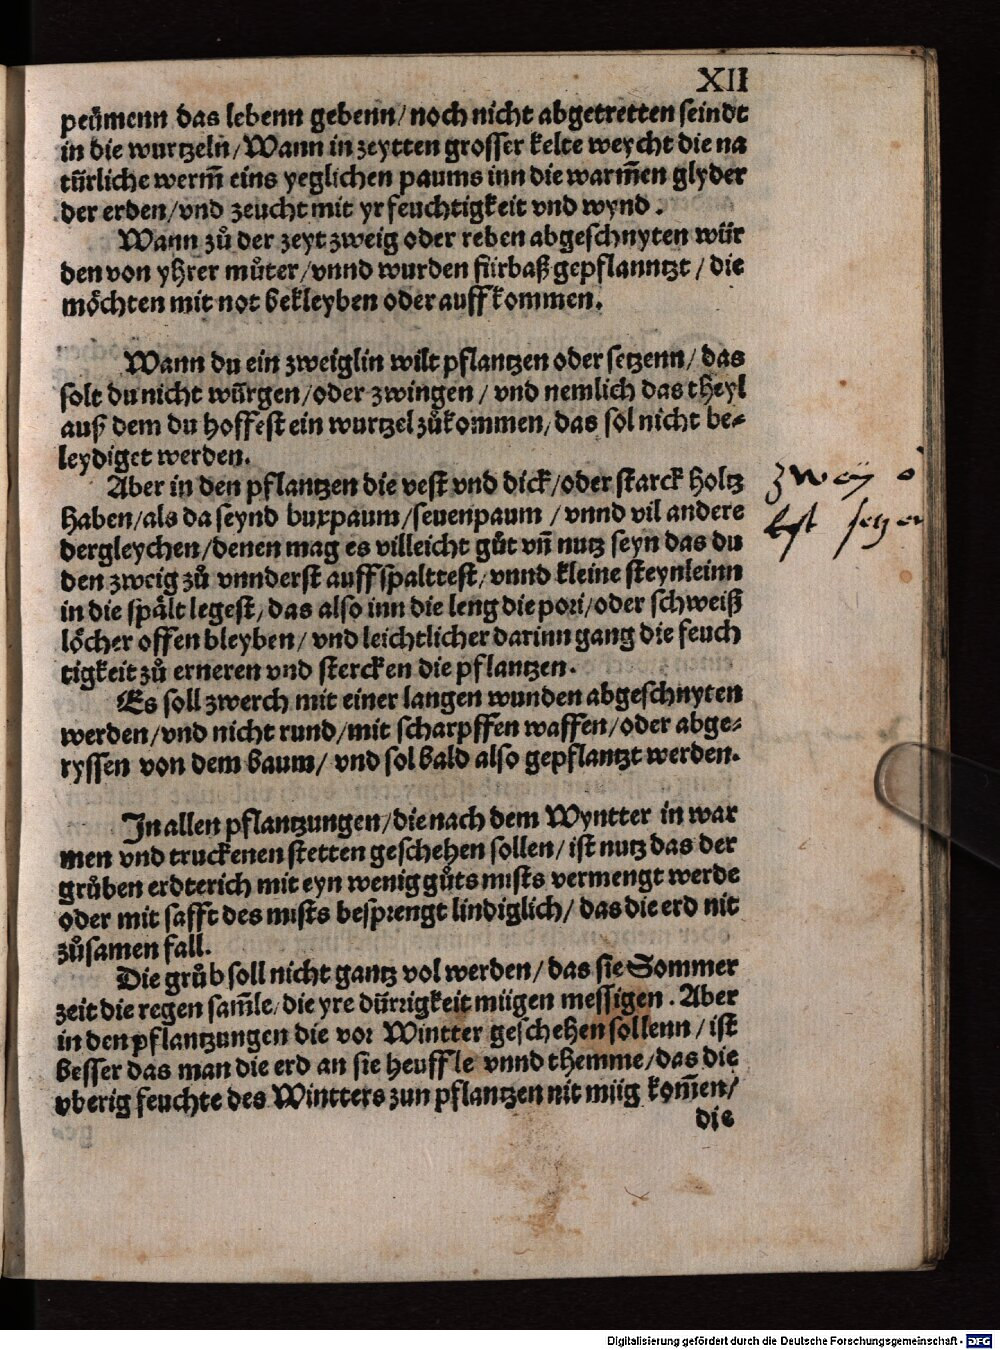 XII
peümenn das lebenn gebenn/ noch nicht abgetretten seindt
in die wurtzeln/ Wann in zeytten grosser kelte weycht die na
türliche werm̃ eins yeglichen paums inn die warm̃en glyder
der erden/ vnd zeucht mit yr feuchtigkeit vnd wynd.
Wann zů der zeyt zweig oder reben abgeschnyten wür
den von yhrer můter/ vnnd wurden fürbaß gepflanntzt/ die
möchten mit not bekleyben oder auffkommen.
Wann du ein zweiglin wilt pflantzen oder setzenn/ das
solt du nicht würgen/ oder zwingen/ vnd nemlich das theyl
auß dem du hoffest ein wurtzel zůkommen/ das sol nicht be-
leydiget werden.
Aber in den pflantzen die vest vnd dick/ oder starck holtz
haben/ als da seynd buxpaum/ seuenpaum/ vnnd vil andere
dergleychen/ denen mag es villeicht gůt vñ nutz seyn das du
den zweig zů vnnderst auffspalttest/ vnnd kleine steynleinn
in die spält legest/ das also inn die leng die pori/ oder schweiß
löcher offen bleyben/ vnd leichtlicher darinn gang die feuch
tigkeit zů erneren vnd stercken die pflantzen.
Es soll zwerch mit einer langen wunden abgeschnyten
werden/ vnd nicht rund/ mit scharpffen waffen/ oder abge-
ryssen von dem baum/ vnd sol bald also gepflantzt werden.
In allen pflantzungen/ die nach dem Wyntter in war
men vnd truckenen stetten geschehen sollen/ ist nutz das der
grůben erdterich mit eyn wenig gůts mists vermengt werde
oder mit safft des mists besprengt lindiglich/ das die erd nit
zůsamen fall.
Die grůb soll nicht gantz vol werden/ das sie Sommer
zeit die regen sam̃le/ die yre dürrigkeit mügen messigen. Aber
in den pflantzungen die vor Wintter geschehen sollenn/ ist
besser das man die erd an sie heuffle vnnd themme/ das die
vberig feuchte des Wintters zun pflantzen nit müg kom̃en/
die
zwey
setzen
Digitalisierung gefördert durch die Deutsche Forschungsgemeinschaft - DFG